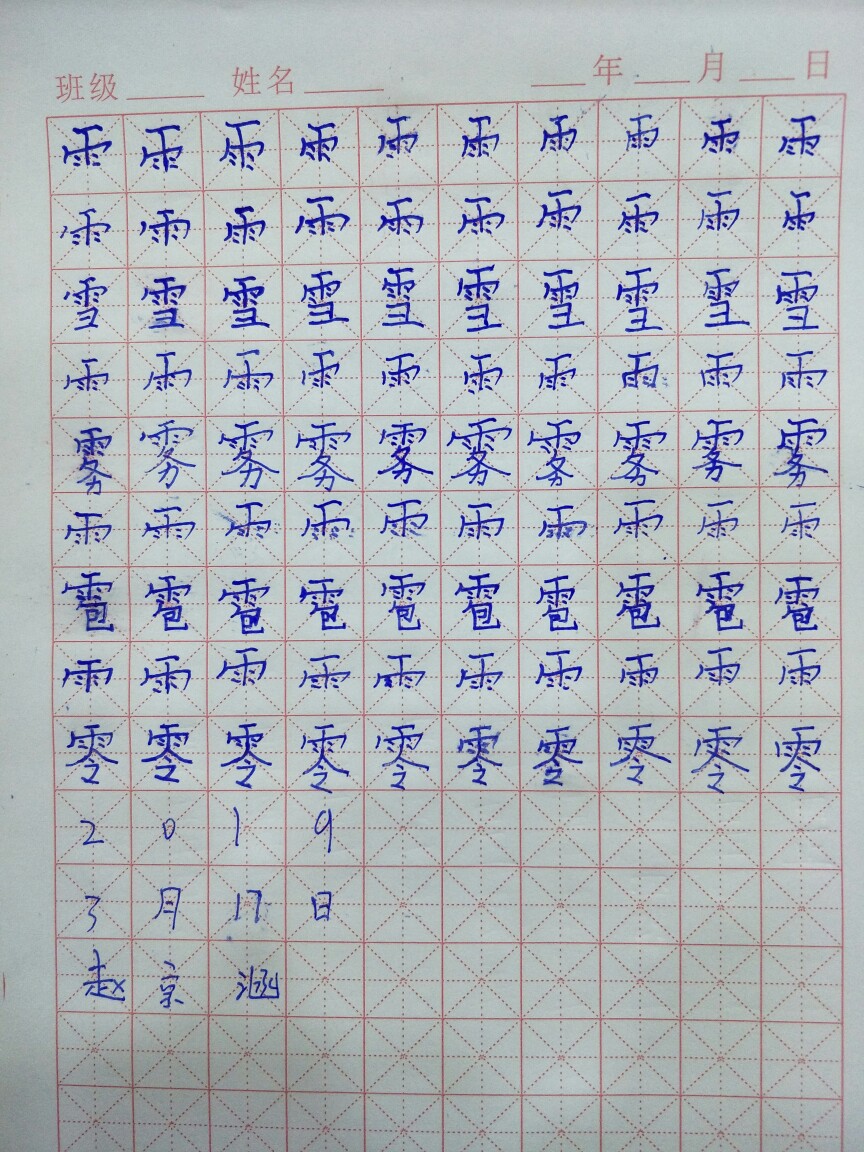 班级 姓名 年 月 日
雨雨雨雨雨雨雨雨雨雨
雨雨雨雨雨雨雨雨雨雨
雪雪雪雪雪雪雪雪雪雪
雨雨雨雨雨雨雨雨雨雨
雾雾雾雾雾雾雾雾雾雾
雨雨雨雨雨雨雨雨雨雨
雹雹雹雹雹雹雹雹雹雹
雨雨雨雨雨雨雨雨雨雨
零零零零零零零零零零
2019
3月17日
赵京涵